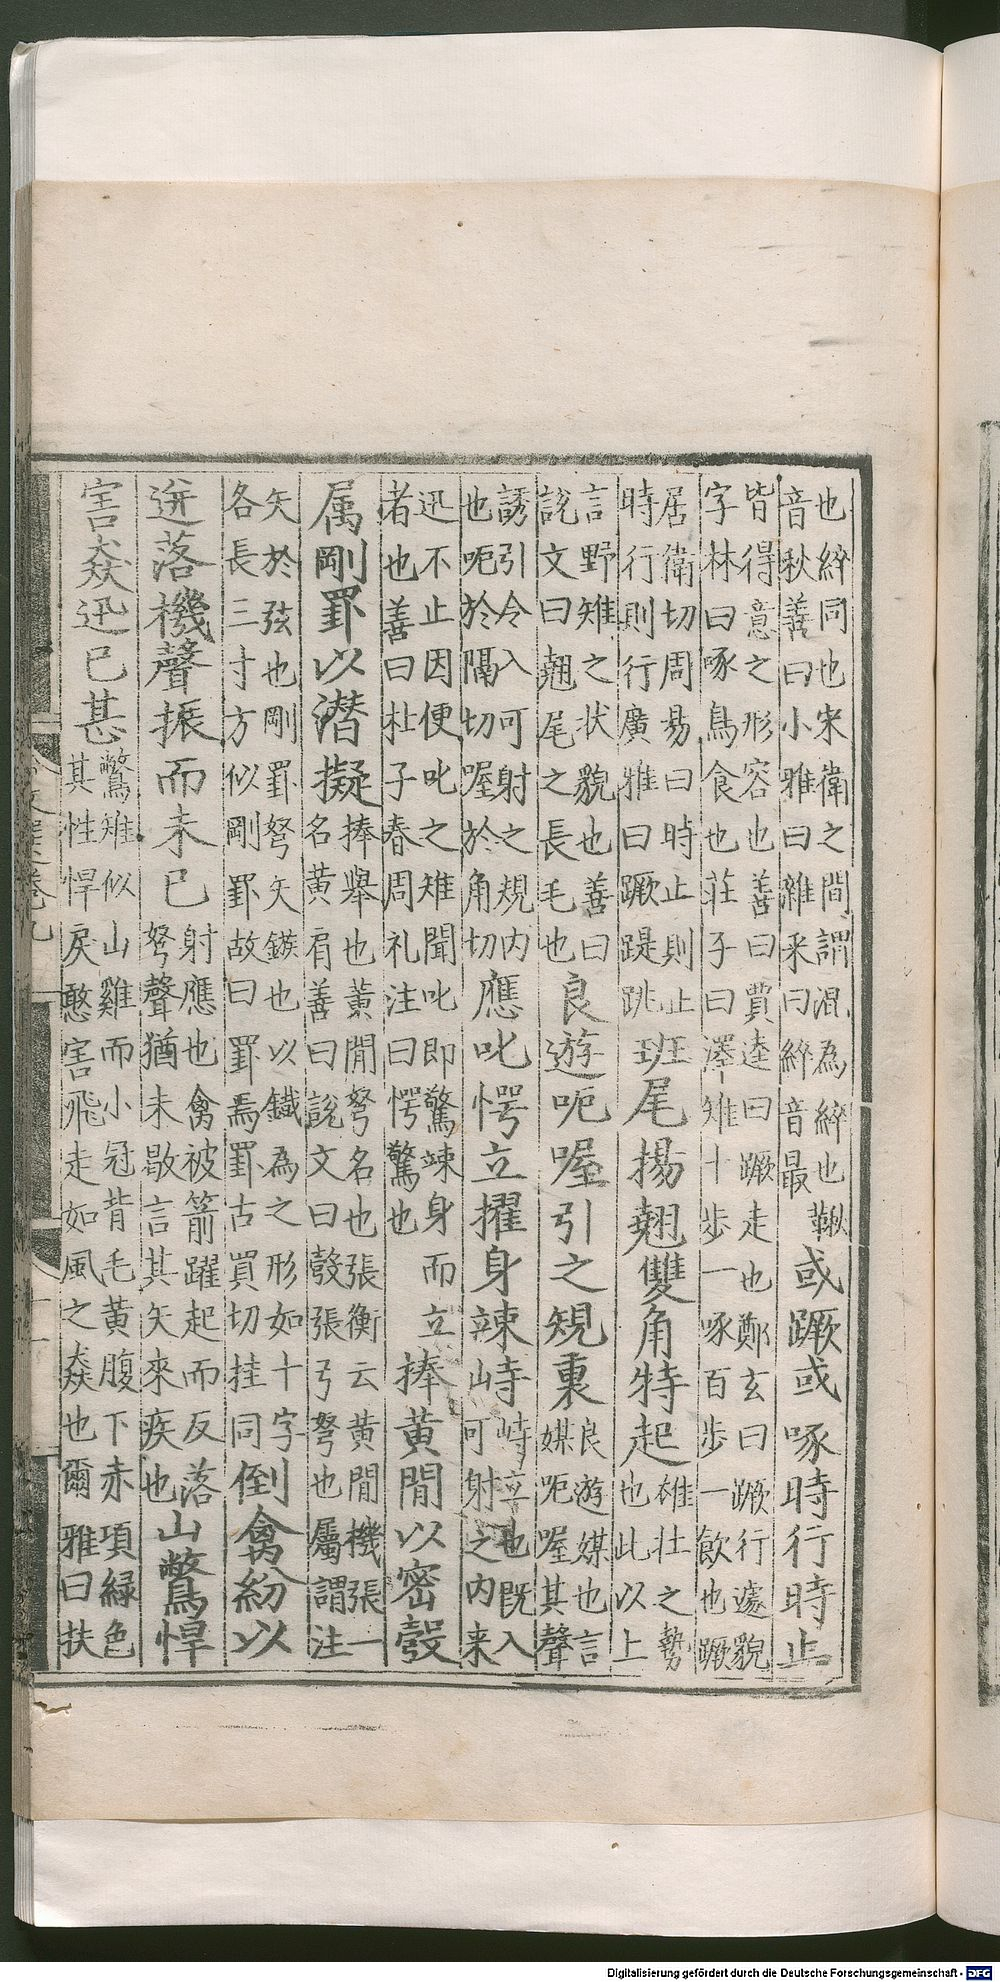 也綷同也宋衛之間謂混為綷也鞦
音秋善曰小雅曰雜采曰綷音最
或蹶或啄時行時止
皆得意之形容也善曰賈逵曰蹶走也鄭玄曰蹶行遽貌
字林曰啄鳥食也莊子曰澤雉十步一啄百步一飲也蹶
居衛切周易曰時止則止
時行則行廣雅曰蹶踶跳
班尾揚翹雙角特起
雄壯之勢
也此以上
言野雉之狀貌也善曰
說文曰翹尾之長毛也
良遊呃喔引之規裏
良游媒也言
媒呃喔其聲
誘引令入可射之規内
也呃於隔切喔於角切
應叱愕立擢身竦峙
峙立也既入
可射之内来
迅不止因便叱之雉聞叱即驚竦身而立
者也善曰杜子春周礼注曰愕驚也
捧黄閒以密彀
属剛罫以潜擬
捧舉也黄閒弩名也張衡云黄閒機張一
名黄肩善曰說文曰彀張弓弩也屬謂注
矢於弦也剛罫弩矢鏃也以鐵為之形如十字
各長三寸方似剛罫故曰罫焉罫古買切挂同
倒禽紛以
迸落機聲振而未已
射應也禽被箭躍起而反落
弩聲猶未歇言其矢來疾也
山鷩悍
害猋迅已甚
鷩雉似山雞而小冠背毛黄腹下赤項緑色
其性悍戾憨害飛走如風之猋也爾雅曰扶
Digitalisierung gefördert durch die Deutsche Forschungsgemeinschaft - DFG